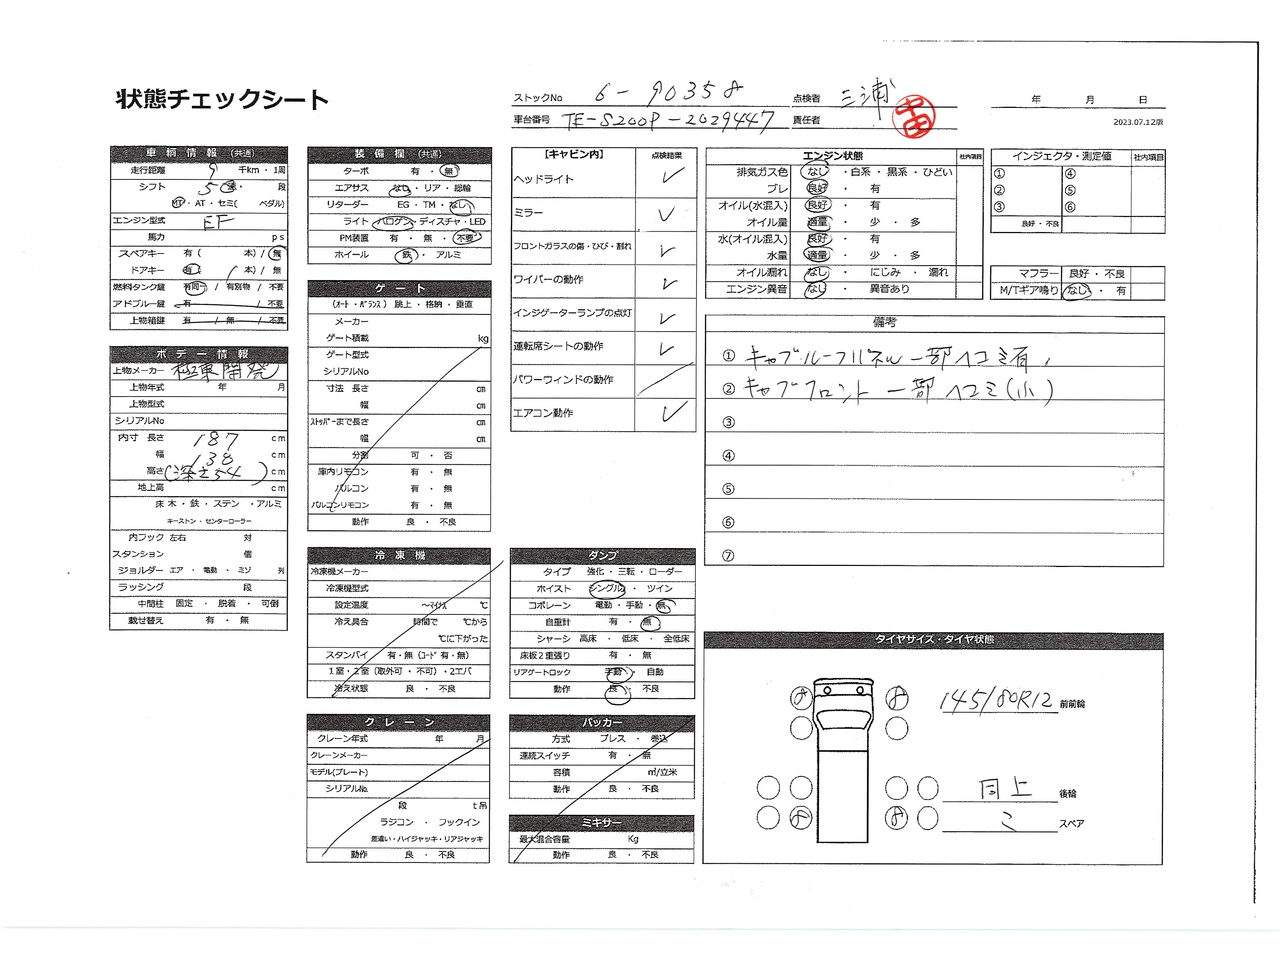 状態チェックシート
ストックNo 6-90358
点検者 三浦
車台番号 TE-S200P-2029447
責任者
中田
年 月 日
2023.07.12版
車輌情報(共通)
走行距離 9 千km・1周
シフト 5 速・ 段
MT・AT・セミ( ペダル)
エンジン型式 EF
馬力 ps
スペアキー 有( 本)/ 無
ドアキー 有( 本)/ 無
燃料タンク鍵 有同一 / 有別物 / 不要
アドブルー鍵 有 / 不要
上物箱鍵 有 / 無 / 不要
ボデー情報
上物メーカー 極東開発
上物年式 年 月
上物型式
シリアルNo
内寸 長さ 187 cm
幅 138 cm
高さ (深さ54) cm
地上高 cm
床 木・鉄・ステン・アルミ
キーストン・センターローラー
内フック 左右 対
スタンション 個
ジョルダー エア・電動・ミゾ 列
ラッシング 段
中間柱 固定・脱着・可倒
載せ替え 有・無
装備欄(共通)
ターボ 有・無
エアサス なし・リア・総輪
リターダー EG・TM・なし
ライト ハロゲン・ディスチャ・LED
PM装置 有・無・不要
ホイール 鉄・アルミ
ゲート
(オート・バランス) 跳上・格納・垂直
メーカー
ゲート積載 kg
ゲート型式
シリアルNo
寸法 長さ cm
幅 cm
ストッパーまで長さ cm
幅 cm
分割 可・否
庫内リモコン 有・無
バルコン 有・無
バルコンリモコン 有・無
動作 良・不良
冷凍機
冷凍機メーカー
冷凍機型式
設定温度 ～マイナス ℃
冷え具合 時間で ℃から
℃に下がった
スタンバイ 有・無(コード 有・無)
1室・2室(取外可・不可)・2エバ
冷え状態 良・不良
クレーン
クレーン年式 年 月
クレーンメーカー
モデル(プレート)
シリアルNo.
段 t吊
ラジコン・フックイン
差違い・ハイジャッキ・リアジャッキ
動作 良・不良
【キャビン内】 点検結果
ヘッドライト ✓
ミラー ✓
フロントガラスの傷・ひび・割れ ✓
ワイパーの動作 ✓
インジゲーターランプの点灯 ✓
運転席シートの動作 ✓
パワーウィンドの動作
エアコン動作 ✓
ダンプ
タイプ 強化・三転・ローダー
ホイスト シングル・ツイン
コボレーン 電動・手動・無
自重計 有・無
シャーシ 高床・低床・全低床
床板2重張り 有・無
リアゲートロック 手動・自動
動作 良・不良
パッカー
方式 プレス・巻込
連続スイッチ 有・無
容積 ㎥/立米
動作 良・不良
ミキサー
最大混合容量 Kg
動作 良・不良
エンジン状態 社内項目
排気ガス色 なし・白系・黒系・ひどい
ブレ 良好・有
オイル(水混入) 良好・有
オイル量 適量・少・多
水(オイル混入) 良好・有
水量 適量・少・多
オイル漏れ なし・にじみ・漏れ
エンジン異音 なし・異音あり
インジェクタ・測定値 社内項目
① ④
② ⑤
③ ⑥
良好・不良
マフラー 良好・不良
M/Tギア鳴り なし・有
備考
① キャブルーフパネル一部ヘコミ有、
② キャブフロント一部ヘコミ(小)
③
④
⑤
⑥
⑦
タイヤサイズ・タイヤ状態
8 8 145/80R12 前前輪
同上 後輪
8 8 スペア